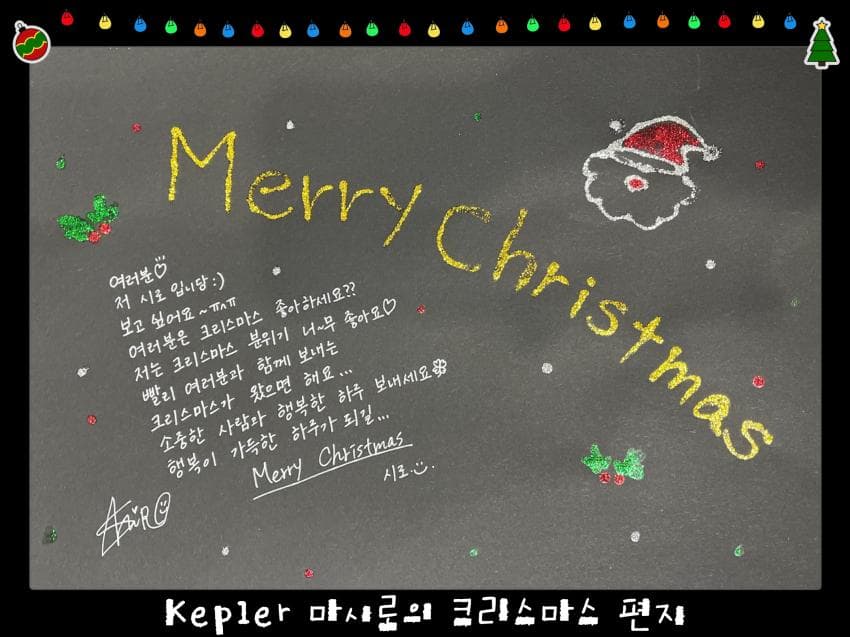 Merry Christmas
여러분♡
저 시로 입니당:)
보고 싶어요~ㅠㅅㅠ
여러분은 크리스마스 좋아하세요??
저는 크리스마스 분위기 너~무 좋아요♡
빨리 여러분과 함께 보내는
크리스마스가 왔으면 해요...
소중한 사람과 행복한 하루 보내세요
행복이 가득한 하루가 되길...
Merry Christmas
시로
Kep1er 마시로의 크리스마스 편지